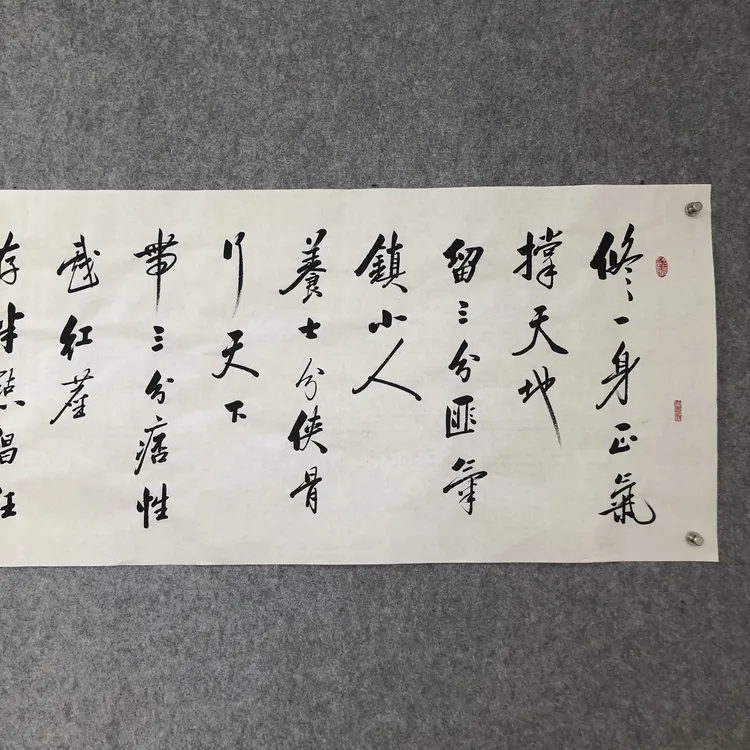 修一身正氣
撐天地
留三分匪氣
鎮小人
養七分俠骨
行天下
帶三分痞性
戲紅塵
存半點猖狂